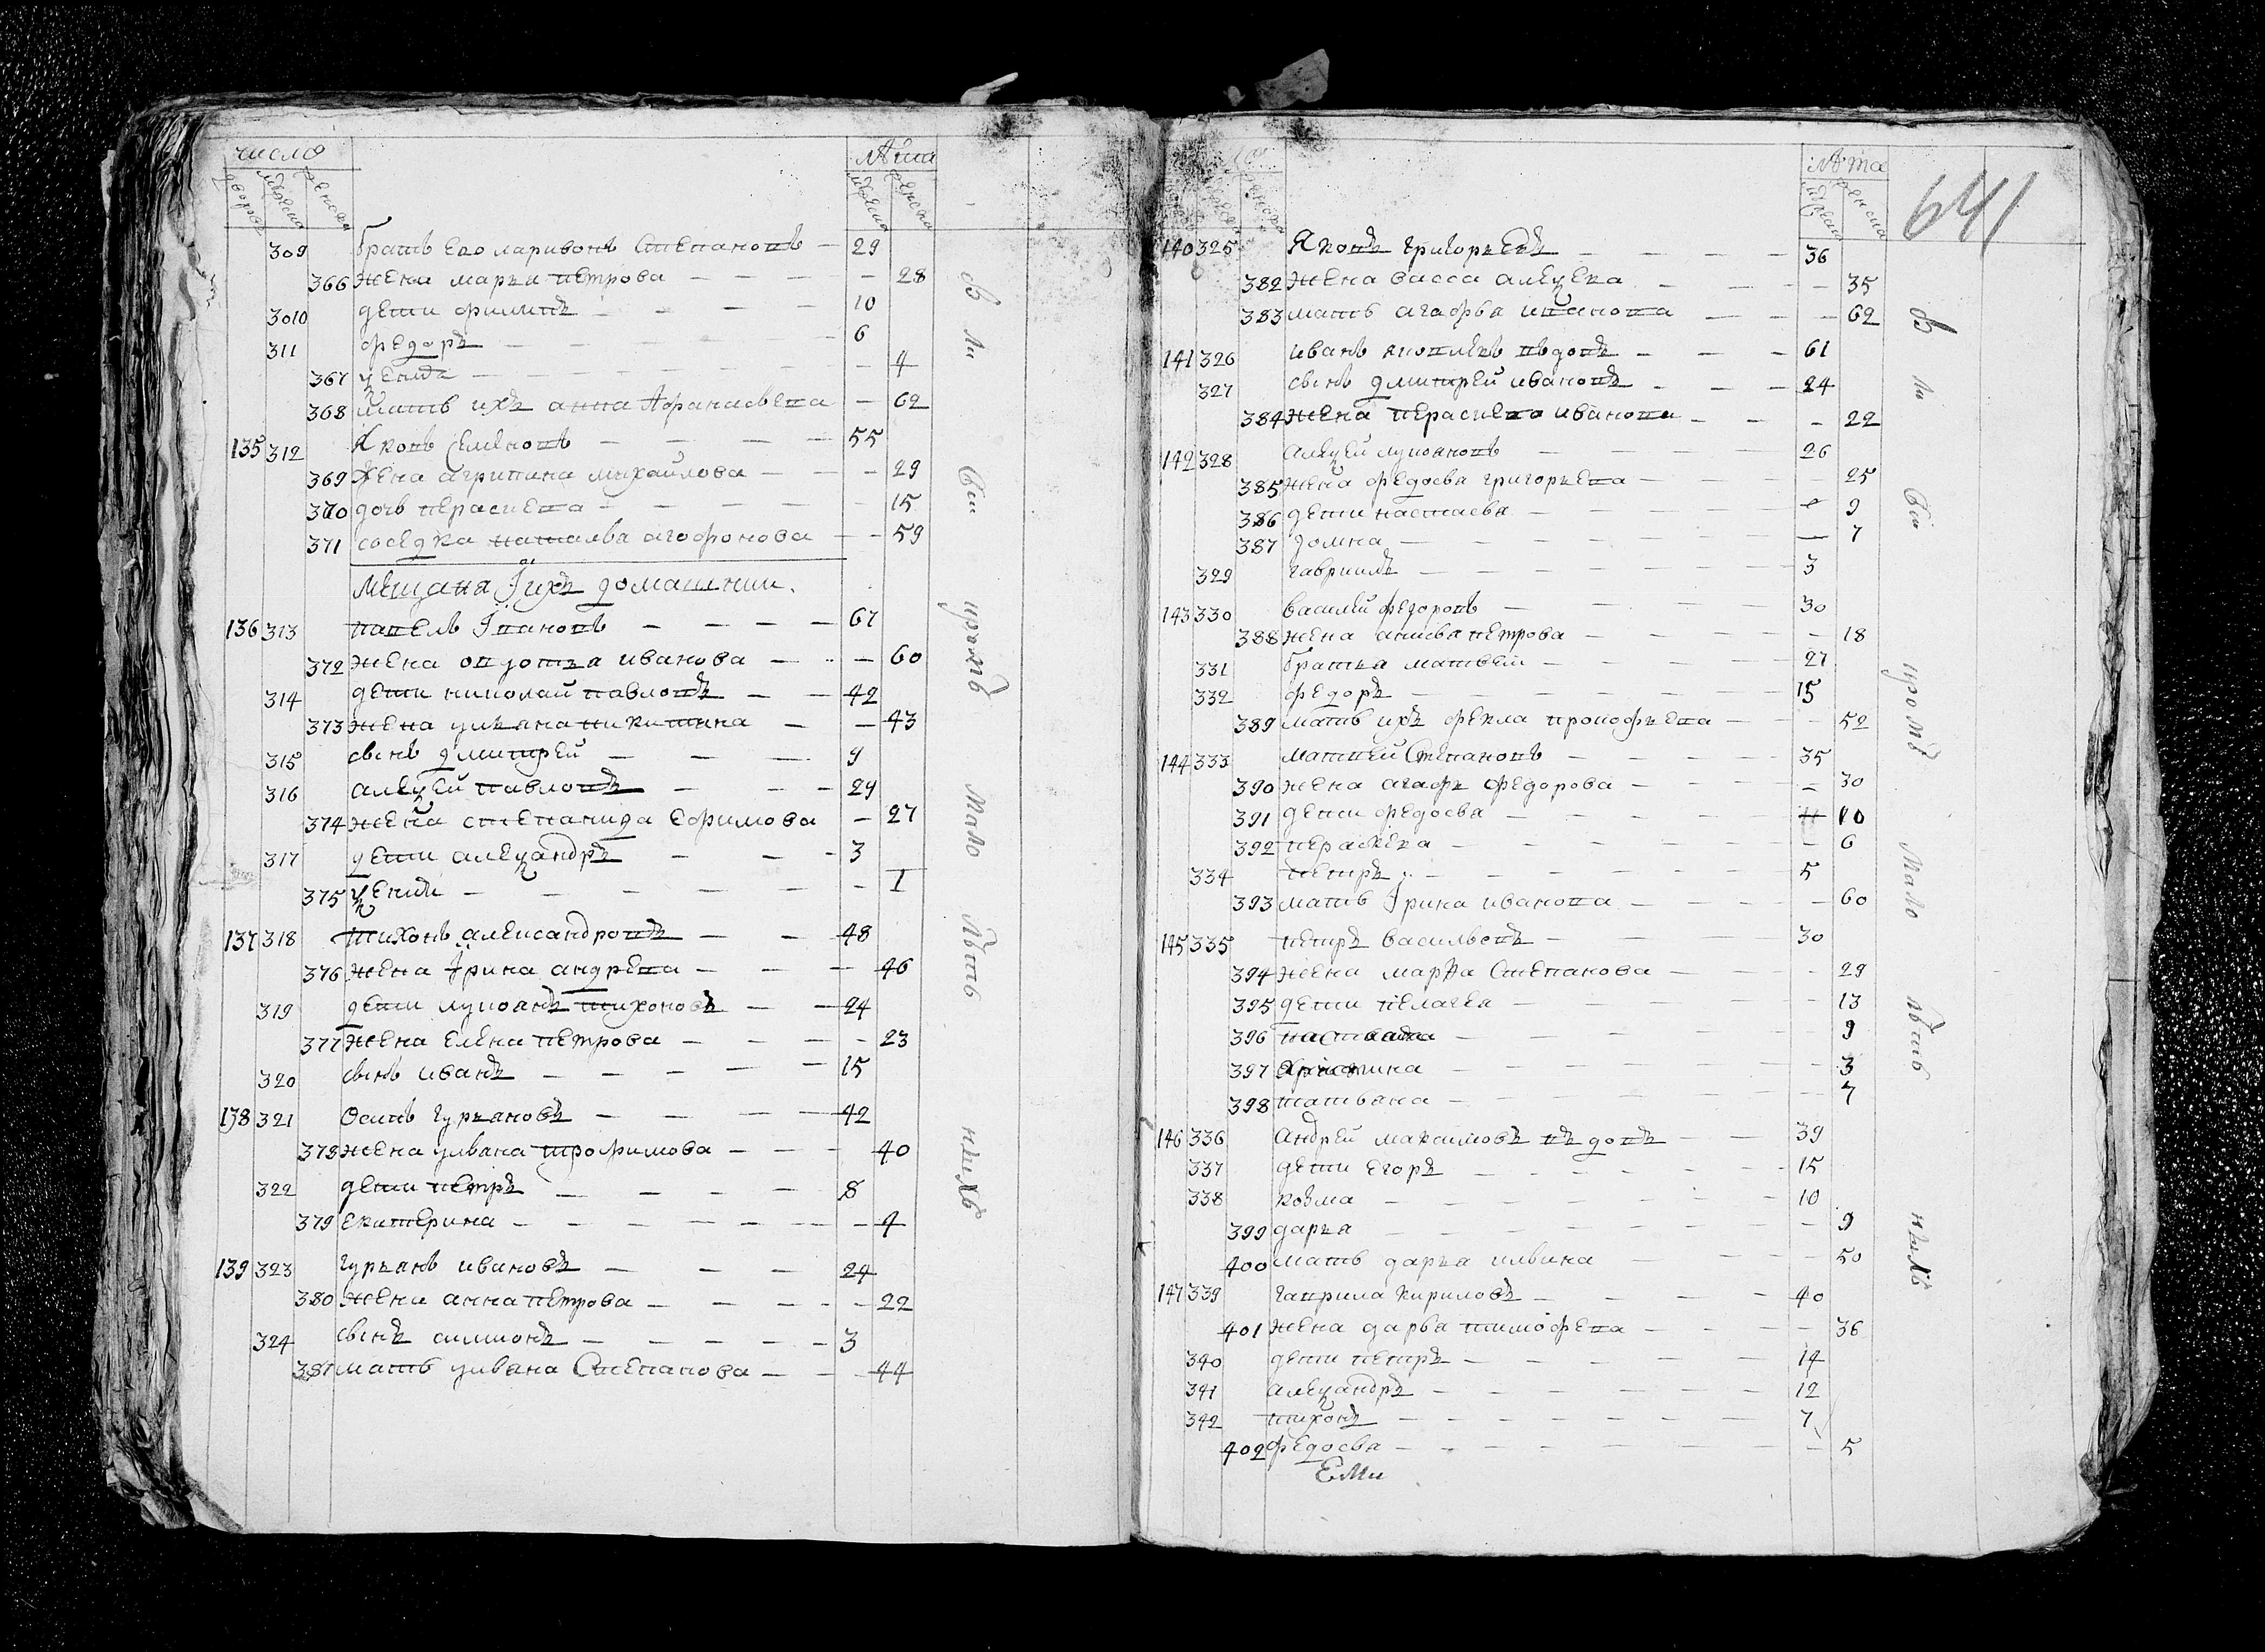 число лѣта
двора мужска женска мужска женска
309 братъ его ларивонъ Степановъ 29
366 жена марья петрова 28
3010 дети филипъ 10
311 федоръ 6
367 ѯения 4
368 мать ихъ анна Афанасьева 62
135 312 Яковъ Семеновъ 55
369 Жена агрипина михайлова 29
370 дочь пераскева 15
371 соседка наталья агофонова 59
Мещаня Iихъ домашнии.
136 313 павелъ Iвановъ 67
372 жена овдотья иванова 60
314 дети николай павловъ 42
373 жена ульяна никитина 43
315 сынъ дмитрей 9
316 алеѯей павловъ 29
374 жена степанида ефимова 27
317 дети алеѯандръ 3
375 ѯения 1
137 318 Тихонъ александровъ 48
376 жена Iрина андреева 46
319 дети лукоянъ тихоновъ 24
377 жена елена петрова 23
320 сынъ иванъ 15
138 321 Осипъ гурьяновъ 42
378 жена ульяна трофимова 40
322 дети петръ 8
379 екатерина 4
139 323 гурьянъ ивановъ 24
380 жена анна петрова 22
324 сынъ симионъ 3
381 мать ульяна Степанова 44
въ ли св и процъ мало лѣтъ ныхъ
641
лѣта
140 325 Яковъ григорьевъ 36
382 жена васса алеѯева 35
383 мать агафья иванова 62
141 326 иванъ яковлевъ вѣдовъ 61
327 сынъ дмитрей ивановъ 24
384 жена пераскева иванова 22
142 328 алеѯей лукояновъ 26
385 жена федосья григорьева 25
386 дети настасья 9
387 домна 7
329 гаврилъ 3
143 330 василей федоровъ 30
388 жена анисья петрова 18
331 братья матвей 27
332 федоръ 15
389 мать ихъ фекла прокофьева 52
144 333 матвей Степановъ 35
390 жена агафья федорова 30
391 дети федосья 10
392 пераскева 6
334 петръ 5
393 мать Iрина иванова 60
145 335 петръ васильевъ 30
394 жена марфа Степанова 29
395 дети пелагея 13
396 9
397 Христина 3
398 татьяна 7
146 336 андрей максимовъ вѣдовъ 39
337 дети егоръ 15
338 козма 10
399 дарья 9
400 мать дарья ильина 50
147 339 гаврила кириловъ 40
401 жена дарья тимофеева 36
340 дети петръ 14
341 алеѯандръ 12
342 тихонъ 7
402 федосья 5